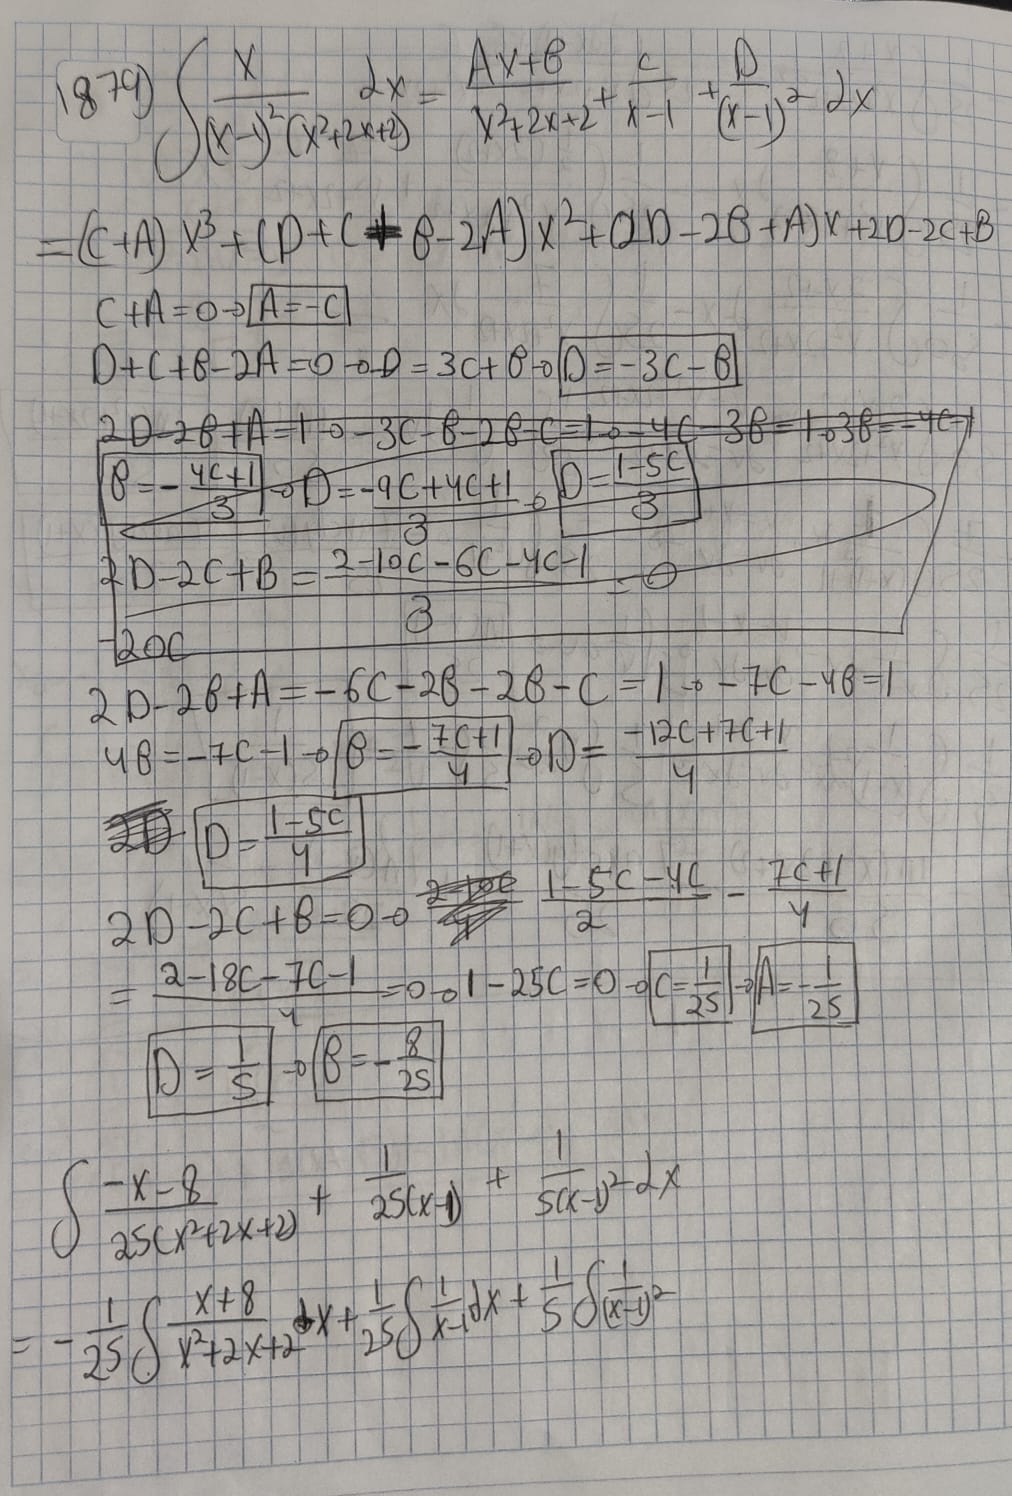 1879) ∫ x/((x-1)²(x²+2x+2)) dx = (Ax+B)/(x²+2x+2) + C/(x-1) + D/(x-1)² dx
= (C+A)x³ + (D+C+B-2A)x² + (2D-2B+A)x + 2D-2C+B
C+A=0 → A=-C
D+C+B-2A=0 → D=3C+B → D=-3C-B
2D-2B+A=1 → -3C-B-2B-C=1 → -4C-3B=1 → 3B=-4C-1
B=-(4C+1)/3 → D=(-9C+4C+1)/3 → D=(1-5C)/3
2D-2C+B = (2-10C-6C-4C-1)/3 = 0
-20C
2D-2B+A=-6C-2B-2B-C=1 → -7C-4B=1
4B=-7C-1 → B=-(7C+1)/4 → D=(-12C+7C+1)/4
D=(1-5C)/4
2D-2C+B=0 → (1-5C-4C)/2 - (7C+1)/4
= (2-18C-7C-1)/4 = 0 → 1-25C=0 → C=1/25 → A=-1/25
D=1/5 → B=-8/25
∫ (-x-8)/(25(x²+2x+2)) + 1/(25(x-1)) + 1/(5(x-1)²) dx
= -1/25 ∫ (x+8)/(x²+2x+2) dx + 1/25 ∫ 1/(x-1) dx + 1/5 ∫ 1/(x-1)²